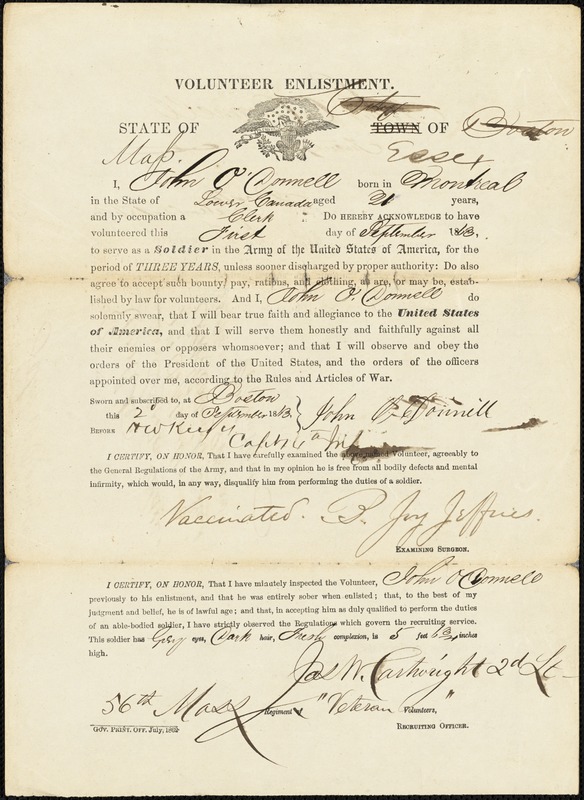 VOLUNTEER ENLISTMENT.
City
STATE OF TOWN OF Boston
Mass. Essex
I, John O'Donnell born in Montreal
in the State of Lower Canada aged 21 years,
and by occupation a Clerk Do HEREBY ACKNOWLEDGE to have
volunteered this First day of September 1863,
to serve as a Soldier in the Army of the United States of America, for the
period of THREE YEARS, unless sooner discharged by proper authority: Do also
agree to accept such bounty, pay, rations, and clothing, as are, or may be, estab-
lished by law for volunteers. And I, John O'Donnell do
solemnly swear, that I will bear true faith and allegiance to the United States
of America, and that I will serve them honestly and faithfully against all
their enemies or opposers whomsoever; and that I will observe and obey the
orders of the President of the United States, and the orders of the officers
appointed over me, according to the Rules and Articles of War.
Sworn and subscribed to, at Boston
this 2d day of September 1863. John O'Donnell
BEFORE
Capt
I CERTIFY, ON HONOR, That I have carefully examined the above named Volunteer, agreeably to
the General Regulations of the Army, and that in my opinion he is free from all bodily defects and mental
infirmity, which would, in any way, disqualify him from performing the duties of a soldier.
Vaccinated. B. Joy Jeffries.
EXAMINING SURGEON.
I CERTIFY, ON HONOR, That I have minutely inspected the Volunteer, John O'Donnell
previously to his enlistment, and that he was entirely sober when enlisted; that, to the best of my
judgment and belief, he is of lawful age; and that, in accepting him as duly qualified to perform the duties
of an able-bodied soldier, I have strictly observed the Regulations which govern the recruiting service.
This soldier has Grey eyes, Dark hair, Fresh complexion, is 5 feet 6 3/4 inches
high.
Jas W. Cartwright 2d Lt
56th Mass Regiment of "Veteran Volunteers,"
RECRUITING OFFICER.
GOV. PRINT. OFF. July, 1862